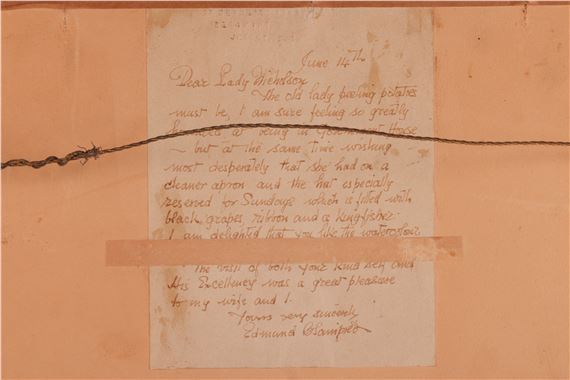 June 14th
Dear Lady Nicholson
The old lady peeling potatoes
must be, I am sure feeling so greatly
at being in Government House
- but at the same time wishing
most desperately that she had on a
cleaner apron and the hat especially
reserved for Sundays which is fitted with
black grapes, ribbon and a kingfisher.
I am delighted that you like the watercolour
The visit of both your kind self and
His Excellency was a great pleasure
to my wife and I.
Yours very sincerely
Edmund Blampied